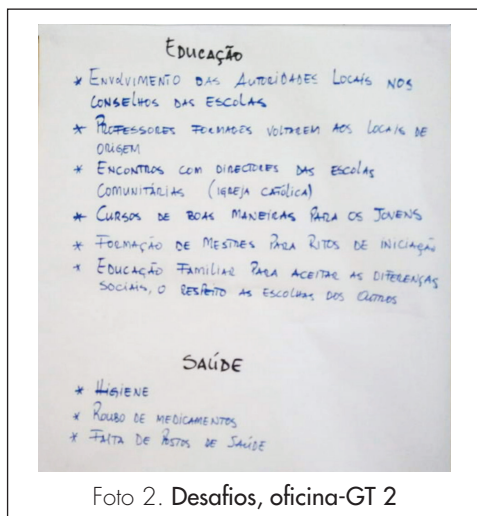 EDUCAÇÃO
* ENVOLVIMENTO DAS AUTORIDADES LOCAIS NOS
CONSELHOS DAS ESCOLAS
* PROFESSORES FORMADOS VOLTAREM AOS LOCAIS DE
ORIGEM
* ENCONTROS COM DIRECTORES DAS ESCOLAS
COMUNITÁRIAS (IGREJA CATÓLICA)
* CURSOS DE BOAS MANEIRAS PARA OS JOVENS
* FORMAÇÃO DE MESTRES PARA RITOS DE INICIAÇÃO
* EDUCAÇÃO FAMILIAR PARA ACEITAR AS DIFERENÇAS
SOCIAIS, O RESPEITO AS ESCOLHAS DOS OUTROS
SAÚDE
* HIGIENE
* ROUBO DE MEDICAMENTOS
* FALTA DE POSTOS DE SAÚDE
Foto 2. Desafios, oficina-GT 2